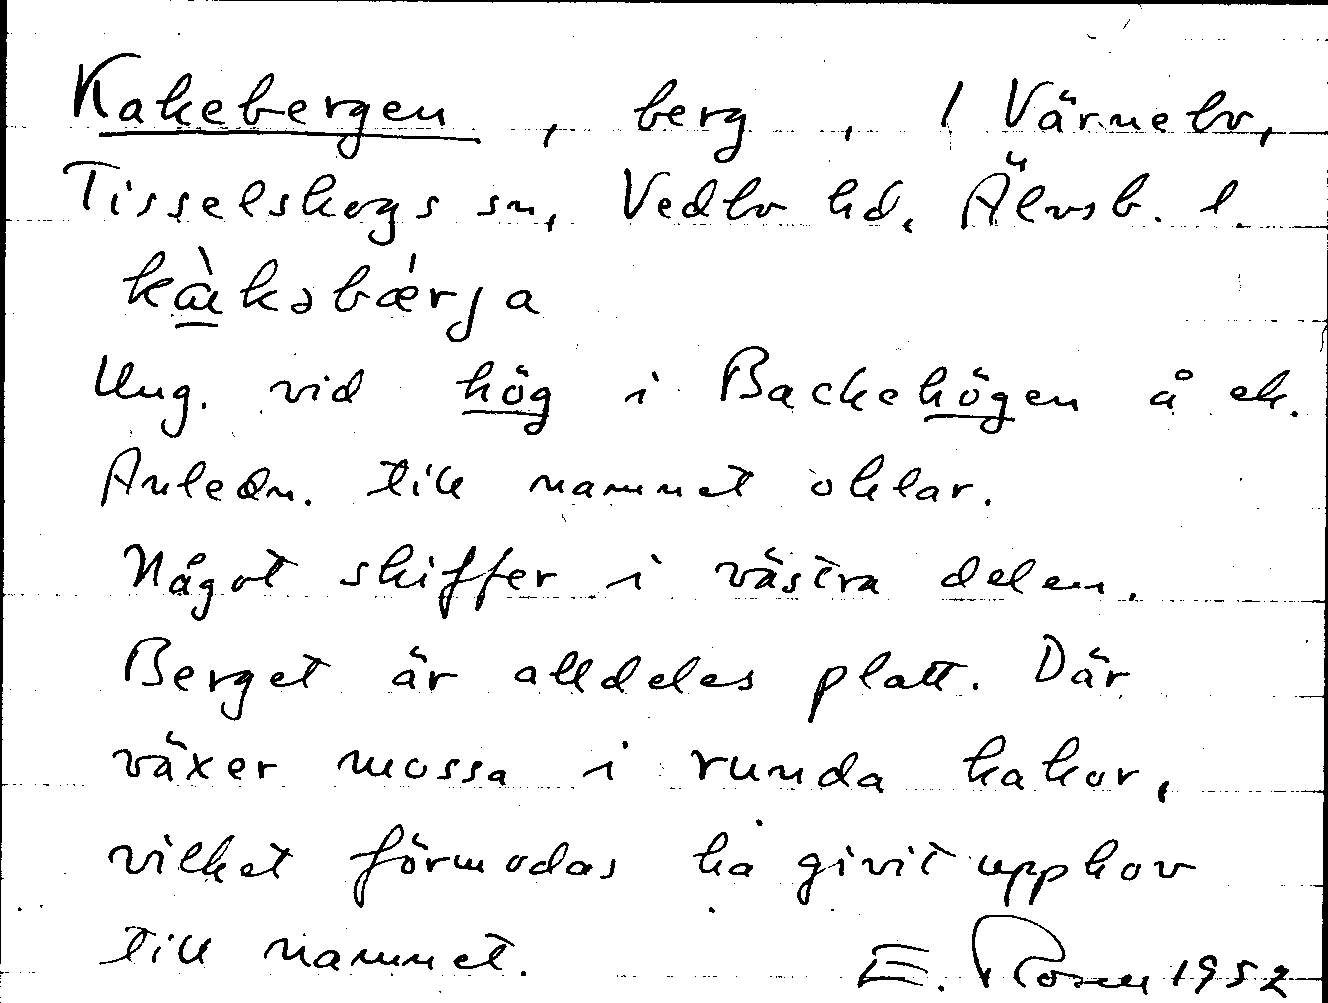 Kakebergen, berg, / Värnebo,
Tisselskogs sn, Vedbo hd, Älvsb. l.
kàkəbǽrja
Ung. vid hög i Backehögen å ek.
Anledn. till namnet oklar.
Något skiffer i västra delen.
Berget är alldeles platt. Där
växer mossa i runda kakor,
vilket förmodas ha givit upphov
till namnet. E. Rosén 1952